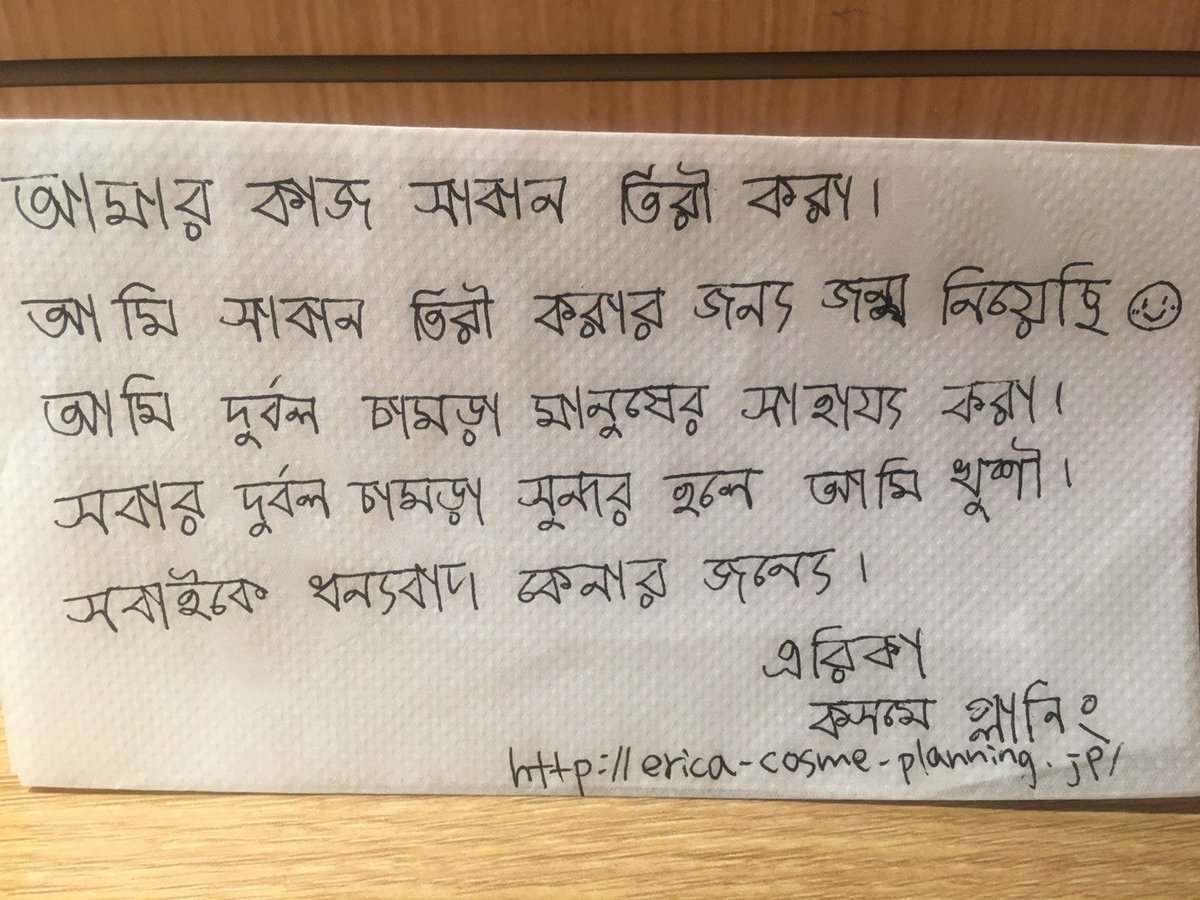 আমার কাজ সাবান তৈরী করা।
আমি সাবান তৈরী করার জন্য জন্ম নিয়েছি
আমি দুর্বল চামড়া মানুষের সাহায্য করা।
সবার দুর্বল চামড়া সুন্দর হলে আমি খুশী।
সবাইকে ধন্যবাদ কেনার জন্যে।
এরিকা
কসমে প্লানিং
http://erica-cosme-planning.jp/